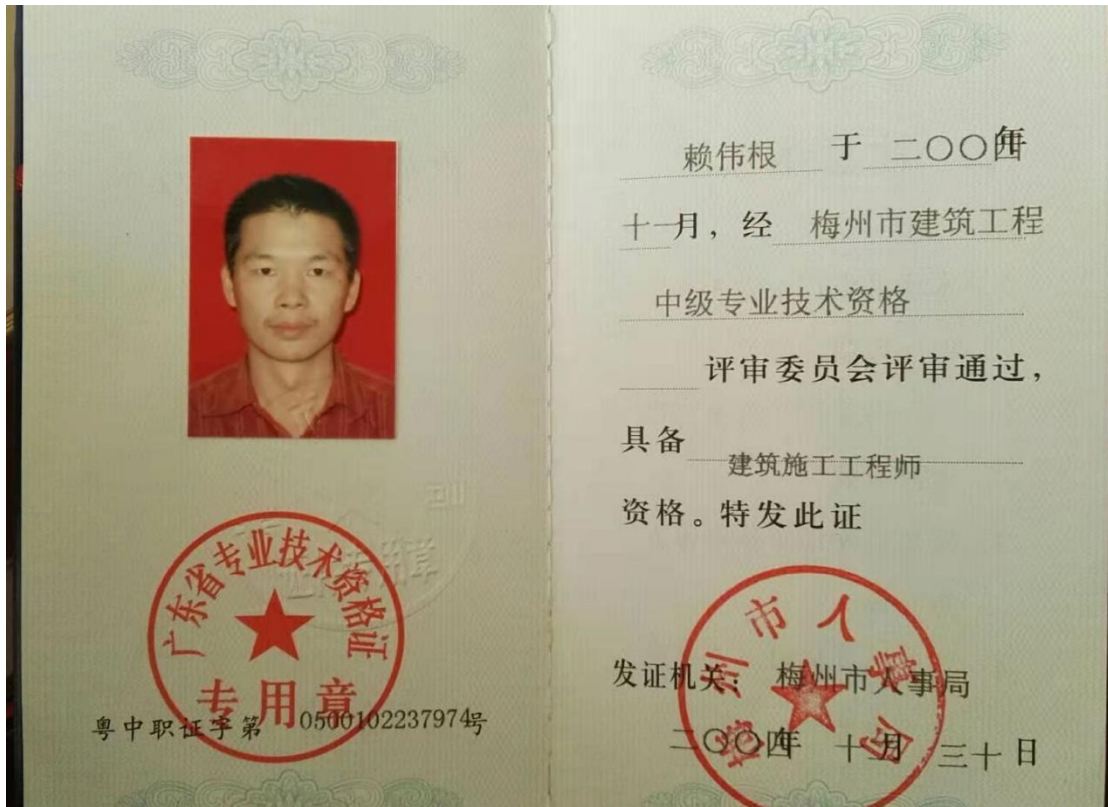 广东省专业技术资格证
专用章
粤中职证字第 0500102237974号
赖伟根 于 二〇〇四年
十一月，经 梅州市建筑工程
中级专业技术资格
评审委员会评审通过，
具备 建筑施工工程师
资格。特发此证
梅州市人事局
发证机关：梅州市人事局
二〇〇四年 十一月 三十日